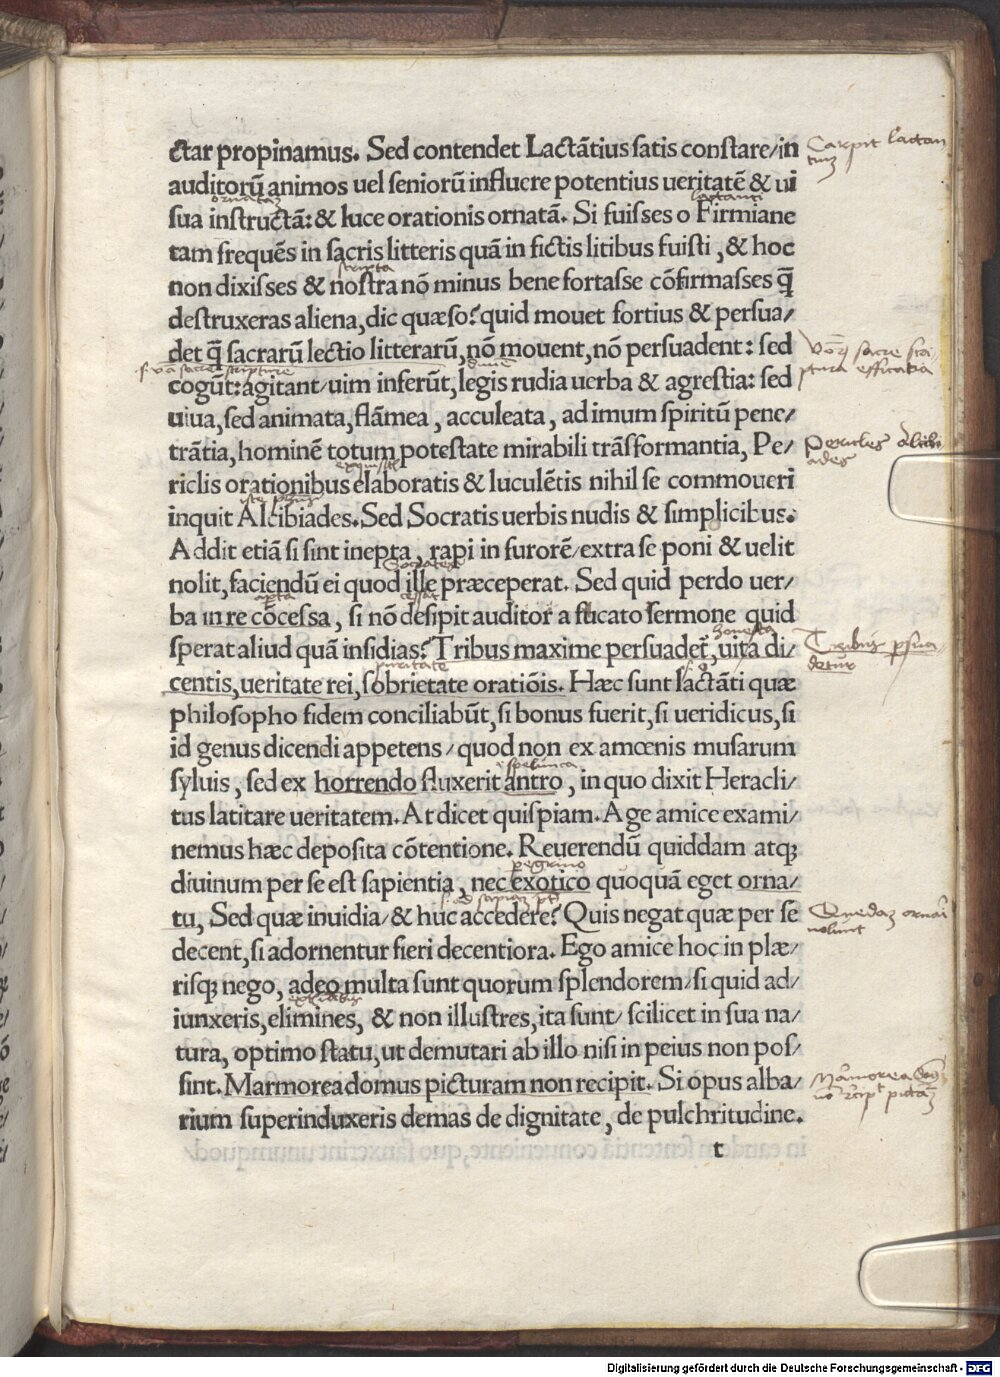 ctar propinamus. Sed contendet Lactātius satis constare/in
auditorū animos uel seniorū influere potentius ueritatē & ui
sua instructā: & luce orationis ornatā. Si fuisses o Firmiane
tam frequēs in sacris litteris quā in fictis litibus fuisti, & hoc
non dixisses & nostra nō minus bene fortasse cōfirmasses q̄
destruxeras aliena, dic quæso? quid mouet fortius & persua/
det q̄ sacrarū lectio litterarū, nō mouent, nō persuadent: sed
cogūt: agitant/uim inferūt, legis rudia uerba & agrestia: sed
uiua, sed animata, flāmea, acculeata, ad imum spiritū pene/
trātia, hominē totum potestate mirabili trāsformantia, Pe/
riclis orationibus elaboratis & luculētis nihil se commoueri
inquit Alcibiades. Sed Socratis uerbis nudis & simplicibus.
Addit etiā si sint inepta, rapi in furorē/extra se poni & uelit
nolit, faciendū ei quod ille præceperat. Sed quid perdo uer/
ba in re cōcessa, si nō desipit auditor a fucato sermone quid
sperat aliud quā insidias? Tribus maxime persuadet̄, uita di/
centis, ueritate rei, sobrietate oratiōis. Hæc sunt lactāti quæ
philosopho fidem conciliabūt, si bonus fuerit, si ueridicus, si
id genus dicendi appetens/quod non ex amœnis musarum
syluis, sed ex horrendo fluxerit antro, in quo dixit Heracli/
tus latitare ueritatem. At dicet quispiam. Age amice exami/
nemus hæc deposita cōtentione. Reuerendū quiddam atq;
diuinum per se est sapientia, nec exotico quoquā eget orna/
tu, Sed quæ inuidia/& huc accedere? Quis negat quæ per se
decent, si adornentur fieri decentiora. Ego amice hoc in plæ/
risq; nego, adeo multa sunt quorum splendorem/si quid ad/
iunxeris, elimines, & non illustres, ita sunt/scilicet in sua na/
tura, optimo statu, ut demutari ab illo nisi in peius non pos/
sint. Marmorea domus picturam non recipit. Si opus alba/
rium superinduxeris demas de dignitate, de pulchritudine.
t
Carpit lactan
tium
ornatam
lactanti
scripta
Pericles Alcibi
ades
Socrates
honesta
Tribus
spelunca
peregrino
Quedam
nolunt
Digitalisierung gefördert durch die Deutsche Forschungsgemeinschaft - DFG